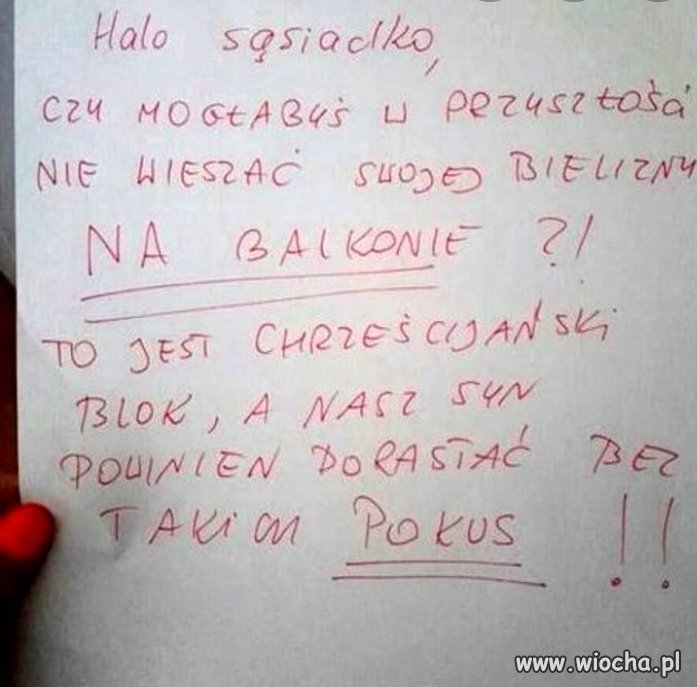 Halo sąsiadko,
CZY MOGŁABYŚ W PRZYSZŁOŚCI
NIE WIESZAĆ SWOJEJ BIELIZNY
NA BALKONIE ?!
TO JEST CHRZEŚCIJAŃSKI
BLOK, A NASZ SYN
POWINIEN DORASTAĆ BEZ
TAKICH POKUS !!
www.wiocha.pl